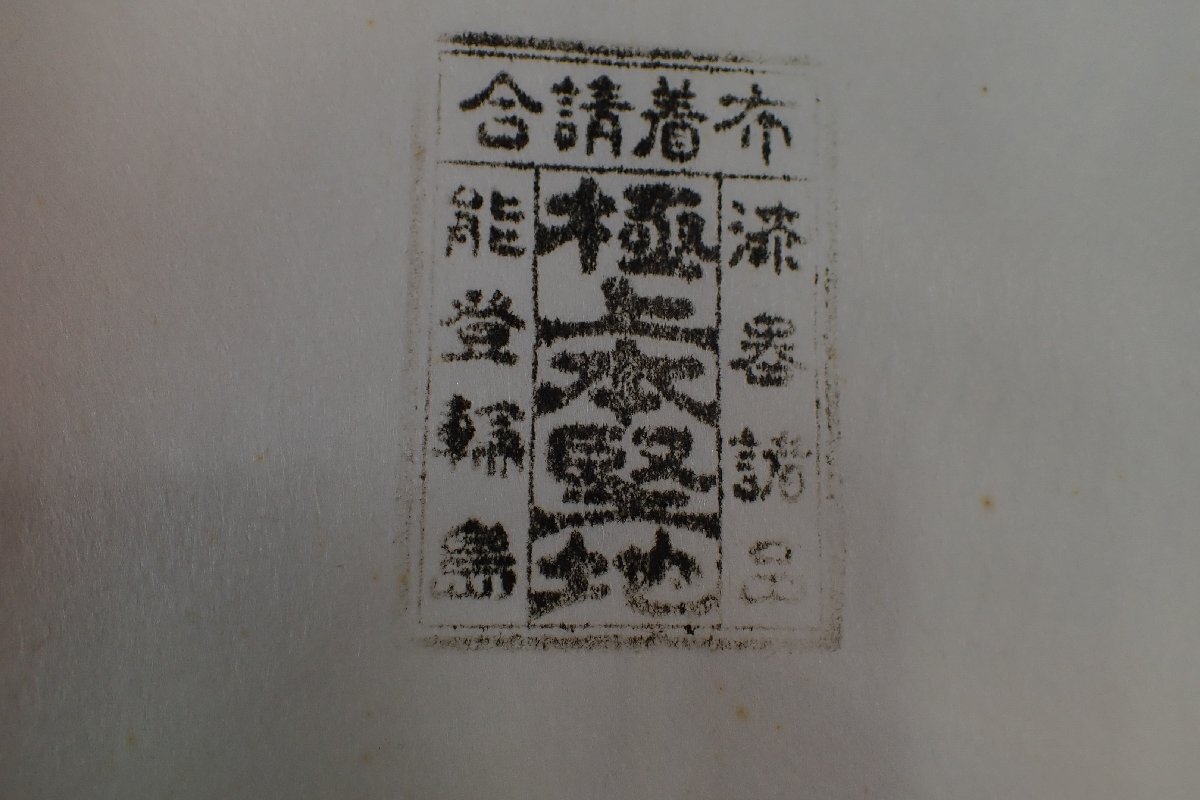 布着請合
漆器諸品
極上本堅地
能登輪島